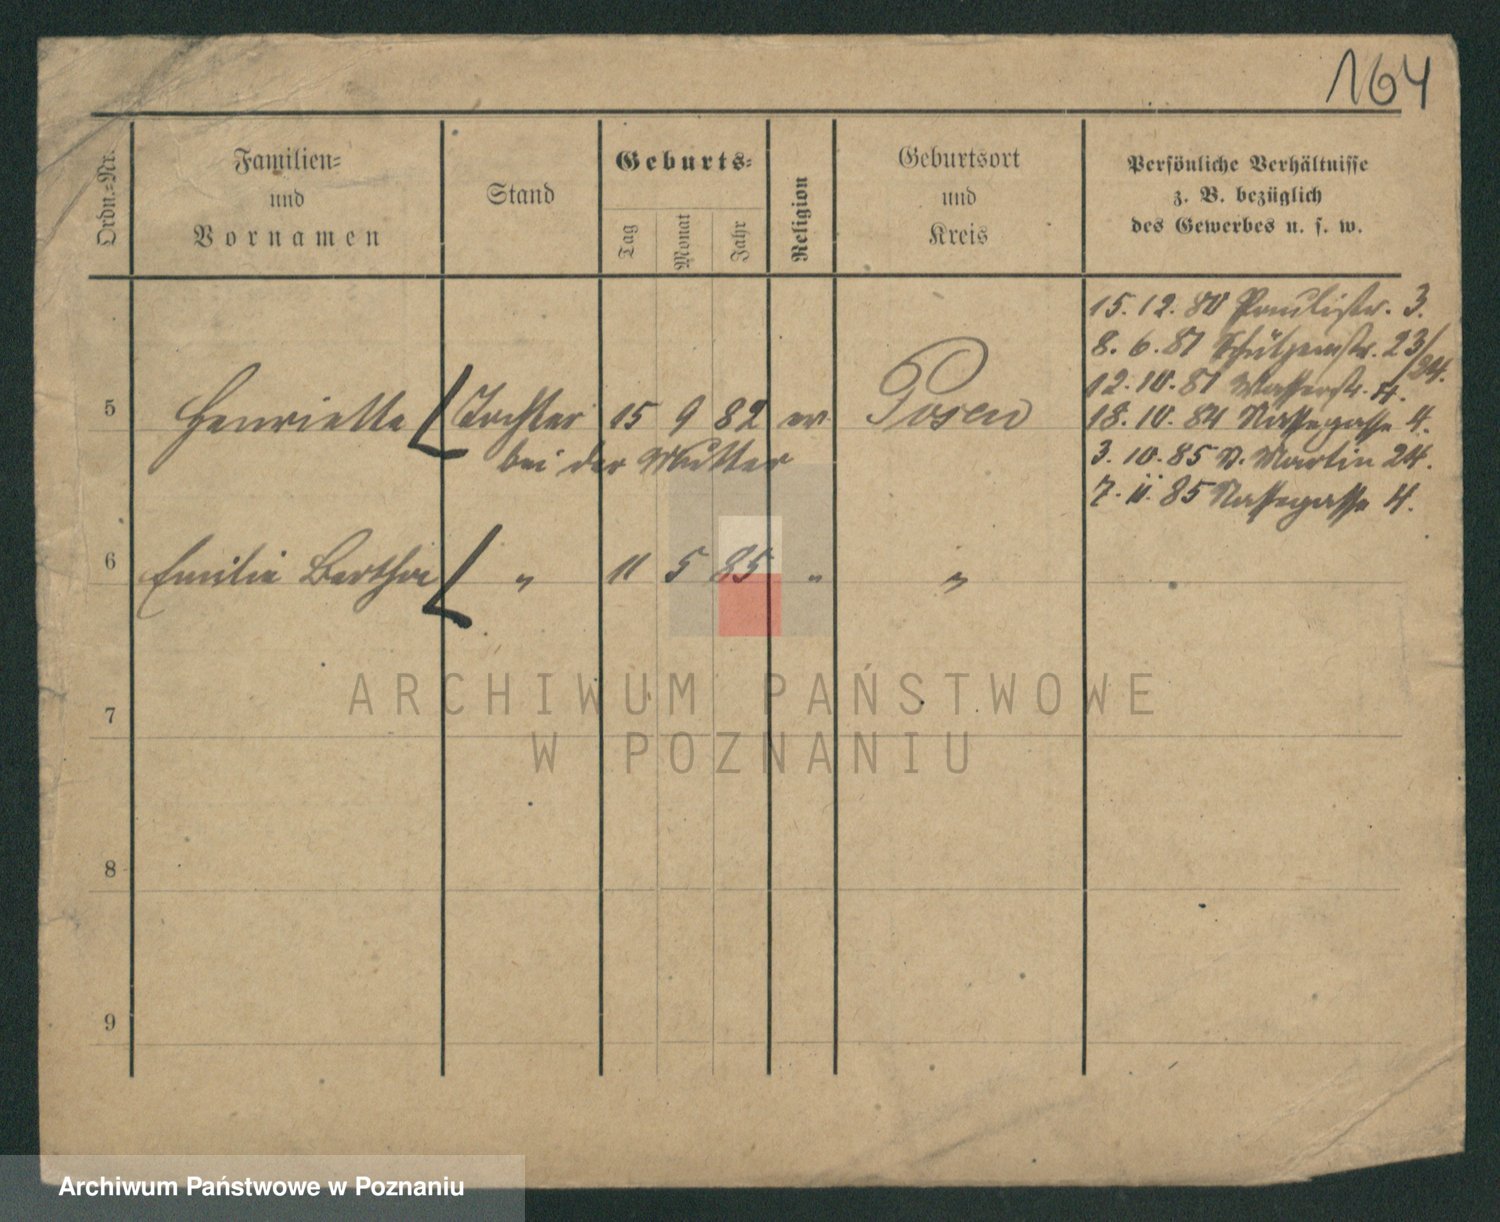 164
Ordn.=Nr.
Familien=
und
Vornamen
Stand
Geburts=
Tag
Monat
Jahr
Religion
Geburtsort
und
Kreis
Persönliche Verhältnisse
z. B. bezüglich
des Gewerbes u. s. w.
15. 12. 80 Paulistr. 3.
8. 6. 81 Schützenstr. 23/24.
12. 10. 81 Wasserstr. 4.
18. 10. 84 Nassegasse 4.
3. 10. 85 St. Martin 24.
7. 11. 85 Nassegasse 4.
5 Henriette Tochter 15 9 82 ev. Posen
bei der Mutter
6 Emilie Bertha " 11 5 85 " "
7
8
9
ARCHIWUM PAŃSTWOWE
W POZNANIU
Archiwum Państwowe w Poznaniu